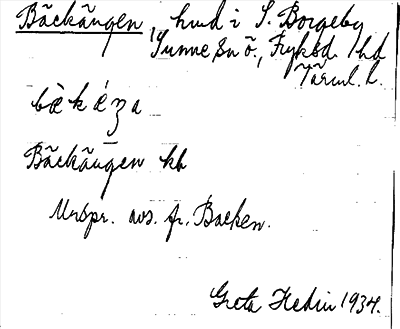 Bäckängen, hmd i S. Borgeby
Sunne sn ö., Fryksd. hd
Värml. l.
Bäckängen kb
Urspr. avs. fr. Backen.
Greta Hedin 1934.